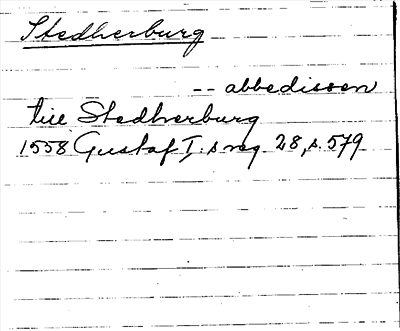 Stedherburg
-- abbedissen
till Stedherburg
1558 Gustaf I:s reg. 28, s. 579